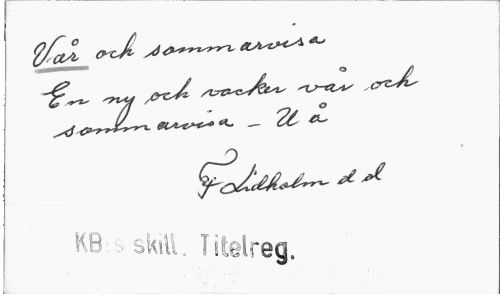 Vår och sommarvisa
En ny och vacker vår och
sommarvisa - U å
F Lidholm d d
KB:s skill. Titelreg.